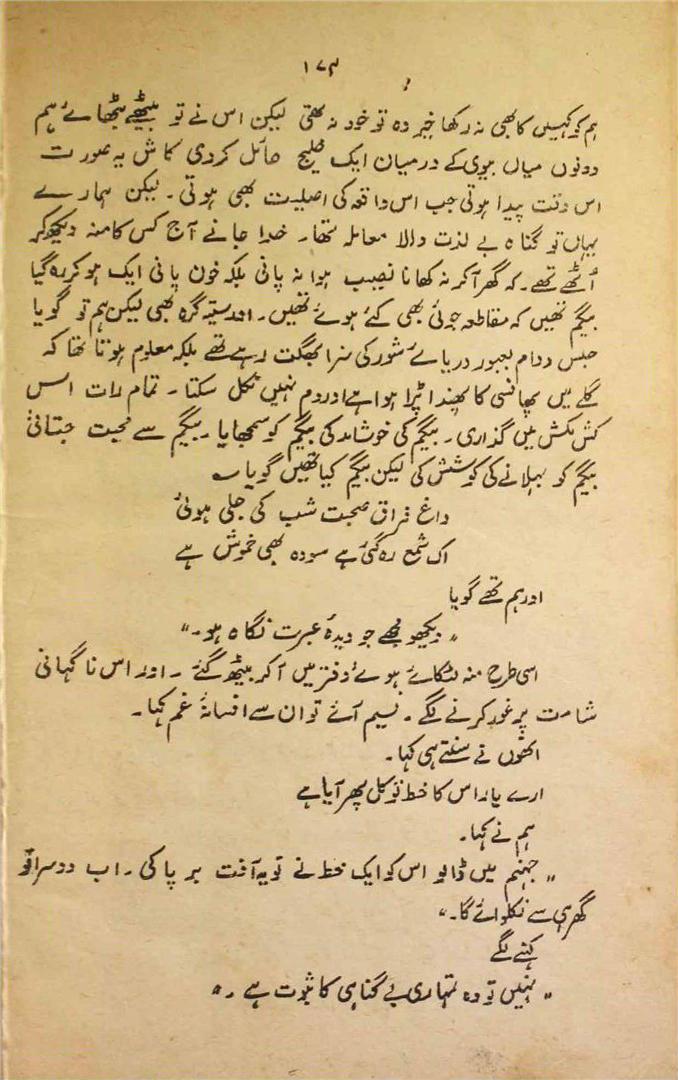 ۱۷۳
ہم کو کہیں کا بھی نہ رکھا خیر وہ تو خود نہ تھی لیکن اس نے تو بیٹھے بٹھائے ہم
دونوں میاں بیوی کے درمیان ایک خلیج حائل کردی کاش یہ صورت
اس وقت پیدا ہوتی جب اس واقعہ کی اصلیت بھی ہوتی۔ لیکن ہمارے
یہاں تو گناہ بے لذت والا معاملہ تھا۔ خدا جانے آج کس کا منہ دیکھ کر
اُٹھے تھے۔ کہ گھر آکر نہ کھانا نصیب ہوا نہ پانی بلکہ خون پانی ایک ہو کر رہ گیا
بیگم تھیں کہ مقاطعہ جوئی بھی کئے ہوئے تھیں۔ اور ستیہ گرہ بھی لیکن ہم تو گویا
حبس دوام بعبور دریائے شور کی سزا بھگت رہے تھے بلکہ معلوم ہوتا تھا کہ
گلے میں پھانسی کا پھندا پڑا ہوا ہے اور دم نہیں نکل سکتا۔ تمام رات اس
کش مکش میں گذاری۔ بیگم کی خوشامد کی بیگم کو سمجھایا۔ بیگم سے محبت جتائی
بیگم کو بہلانے کی کوشش کی لیکن بیگم کیا تھیں گویا ؎
داغ فراق صحبت شب کی جلی ہوئی
اک شمع رہ گئی ہے سو وہ بھی خموش ہے
اور ہم تھے گویا
”دیکھو مجھے جو دیدۂ عبرت نگاہ ہو۔“
اسی طرح منہ لٹکائے ہوئے دفتر میں آکر بیٹھ گئے۔ اور اس ناگہانی
شامت پر غور کرنے لگے۔ نسیم آئے تو ان سے افسانۂ غم کہا۔
انھوں نے سنتے ہی کہا۔
ارے یار اس کا خط تو کل پھر آیا ہے
ہم نے کہا۔
”جہنم میں ڈالو اس کو ایک خط نے تو یہ آفت برپا کی۔ اب دوسرا تو
گھر ہی سے نکلوائے گا۔“
کہنے لگے
”نہیں تو وہ تمہاری بے گناہی کا ثبوت ہے۔“